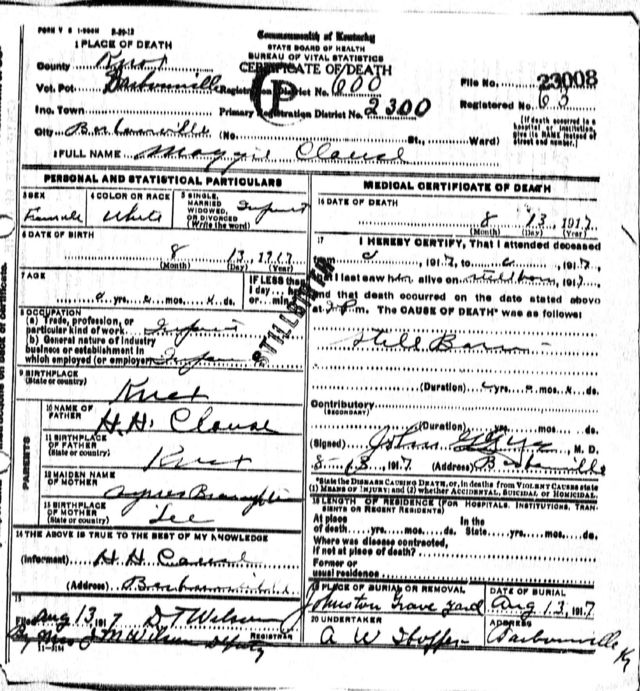 FORM V S 1-
Commonwealth of Kentucky
STATE BOARD OF HEALTH
BUREAU OF VITAL STATISTICS
CERTIFICATE OF DEATH
1 PLACE OF DEATH
County Knox
Vot. Pct. Barbourville Registration District No. 600 File No. 23008
Inc. Town Primary Registration District No. 2300 Registered No. 63
City Barbourville (No. St., Ward) (If death occurred in a hospital or institution, give its NAME instead of street and number.)
2 FULL NAME Maggie Clouse
PERSONAL AND STATISTICAL PARTICULARS
3 SEX Female
4 COLOR OR RACE White
5 SINGLE, MARRIED WIDOWED, OR DIVORCED (Write the word) Infant
6 DATE OF BIRTH
8 13, 1917
(Month) (Day) (Year)
7 AGE
IF LESS than
1 day, hrs
yrs. mos. ds. or min
STILLBORN
8 OCCUPATION
(a) Trade, profession, or
particular kind of work Infant
(b) General nature of industry
business or establishment in
which employed (or employer) Infant
9 BIRTHPLACE
(State or country) Knox
PARENTS
10 NAME OF FATHER H. H. Clouse
11 BIRTHPLACE OF FATHER (State or country) Knox
12 MAIDEN NAME OF MOTHER Agnes
13 BIRTHPLACE OF MOTHER (State or country) Lee
14 THE ABOVE IS TRUE TO THE BEST OF MY KNOWLEDGE
(Informant) H H
(Address) Barbourville
15
Filed Aug 13, 1917 D T Wilson
REGISTRAR
By Wilson Deputy
11-3184
MEDICAL CERTIFICATE OF DEATH
16 DATE OF DEATH
8 13, 1917
(Month) (Day) (Year)
17 I HEREBY CERTIFY, That I attended deceased
, 1917, to , 1917,
that I last saw her alive on stillborn, 1917,
and that death occurred on the date stated above
at m. The CAUSE OF DEATH* was as follows:
Still Born
(Duration) yrs. mos. ds.
Contributory
(SECONDARY)
(Duration) yrs. mos. ds.
(Signed) John , M. D.
8-13, 1917 (Address) Barbourville
*State the DISEASE CAUSING DEATH, or, in deaths from VIOLENT CAUSES state
(1) MEANS OF INJURY; and (2) whether ACCIDENTAL, SUICIDAL or HOMICIDAL.
18 LENGTH OF RESIDENCE (FOR HOSPITALS, INSTITUTIONS, TRANSIENTS OR RECENT RESIDENTS)
At place of death yrs. mos. ds. In the State yrs. mos. ds.
Where was disease contracted,
if not at place of death?
Former or
usual residence
19 PLACE OF BURIAL OR REMOVAL Johnston Grave Yard
DATE OF BURIAL Aug 13, 1917
20 UNDERTAKER A W Hopper
ADDRESS Barbourville Ky